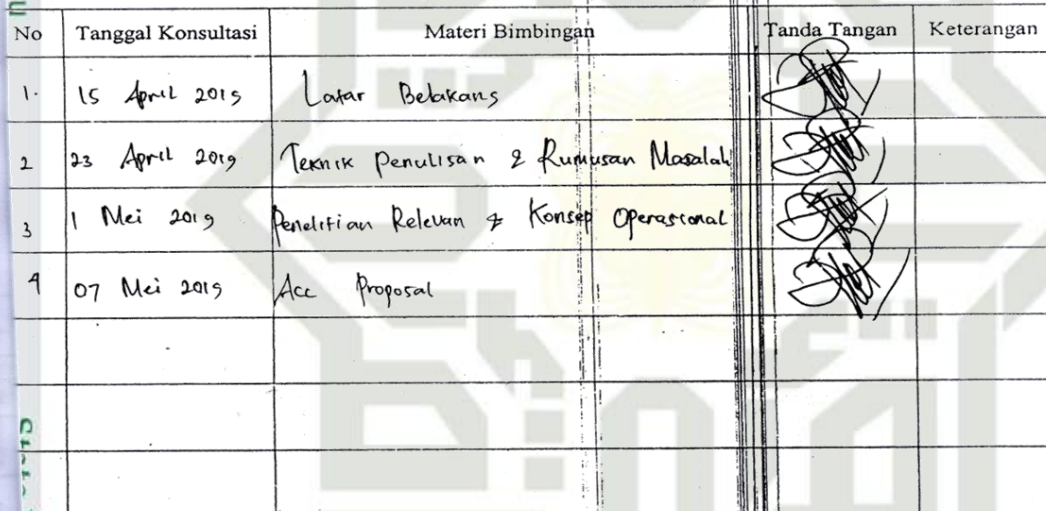 No Tanggal Konsultasi Materi Bimbingan Tanda Tangan Keterangan
1. 15 April 2019 Latar Belakang
2 23 April 2019 Teknik Penulisan & Rumusan Masalah
3 1 Mei 2019 Penelitian Relevan & Konsep Operasional
4 07 Mei 2019 Acc Proposal